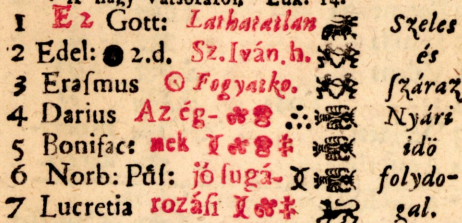 1 E 2 Gott: Lathatatlan Szeles
2 Edel: 2.d. Sz. Iván. h. és
3 Eraſmus Fogyatko. ſzáraz
4 Darius Az ég- Nyári
5 Bonifac: nek idö
6 Norb: Püſ: jó ſugá- folydo-
7 Lucretia rozáſi gal.